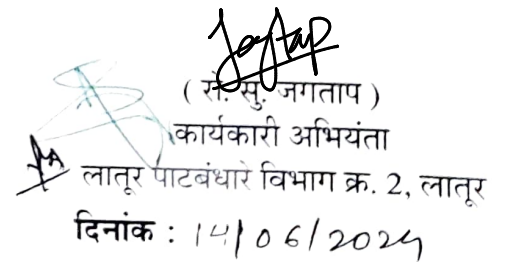 ( रो. सु. जगताप )
कार्यकारी अभियंता
लातूर पाटबंधारे विभाग क्र. 2, लातूर
दिनांक : 14/06/2024